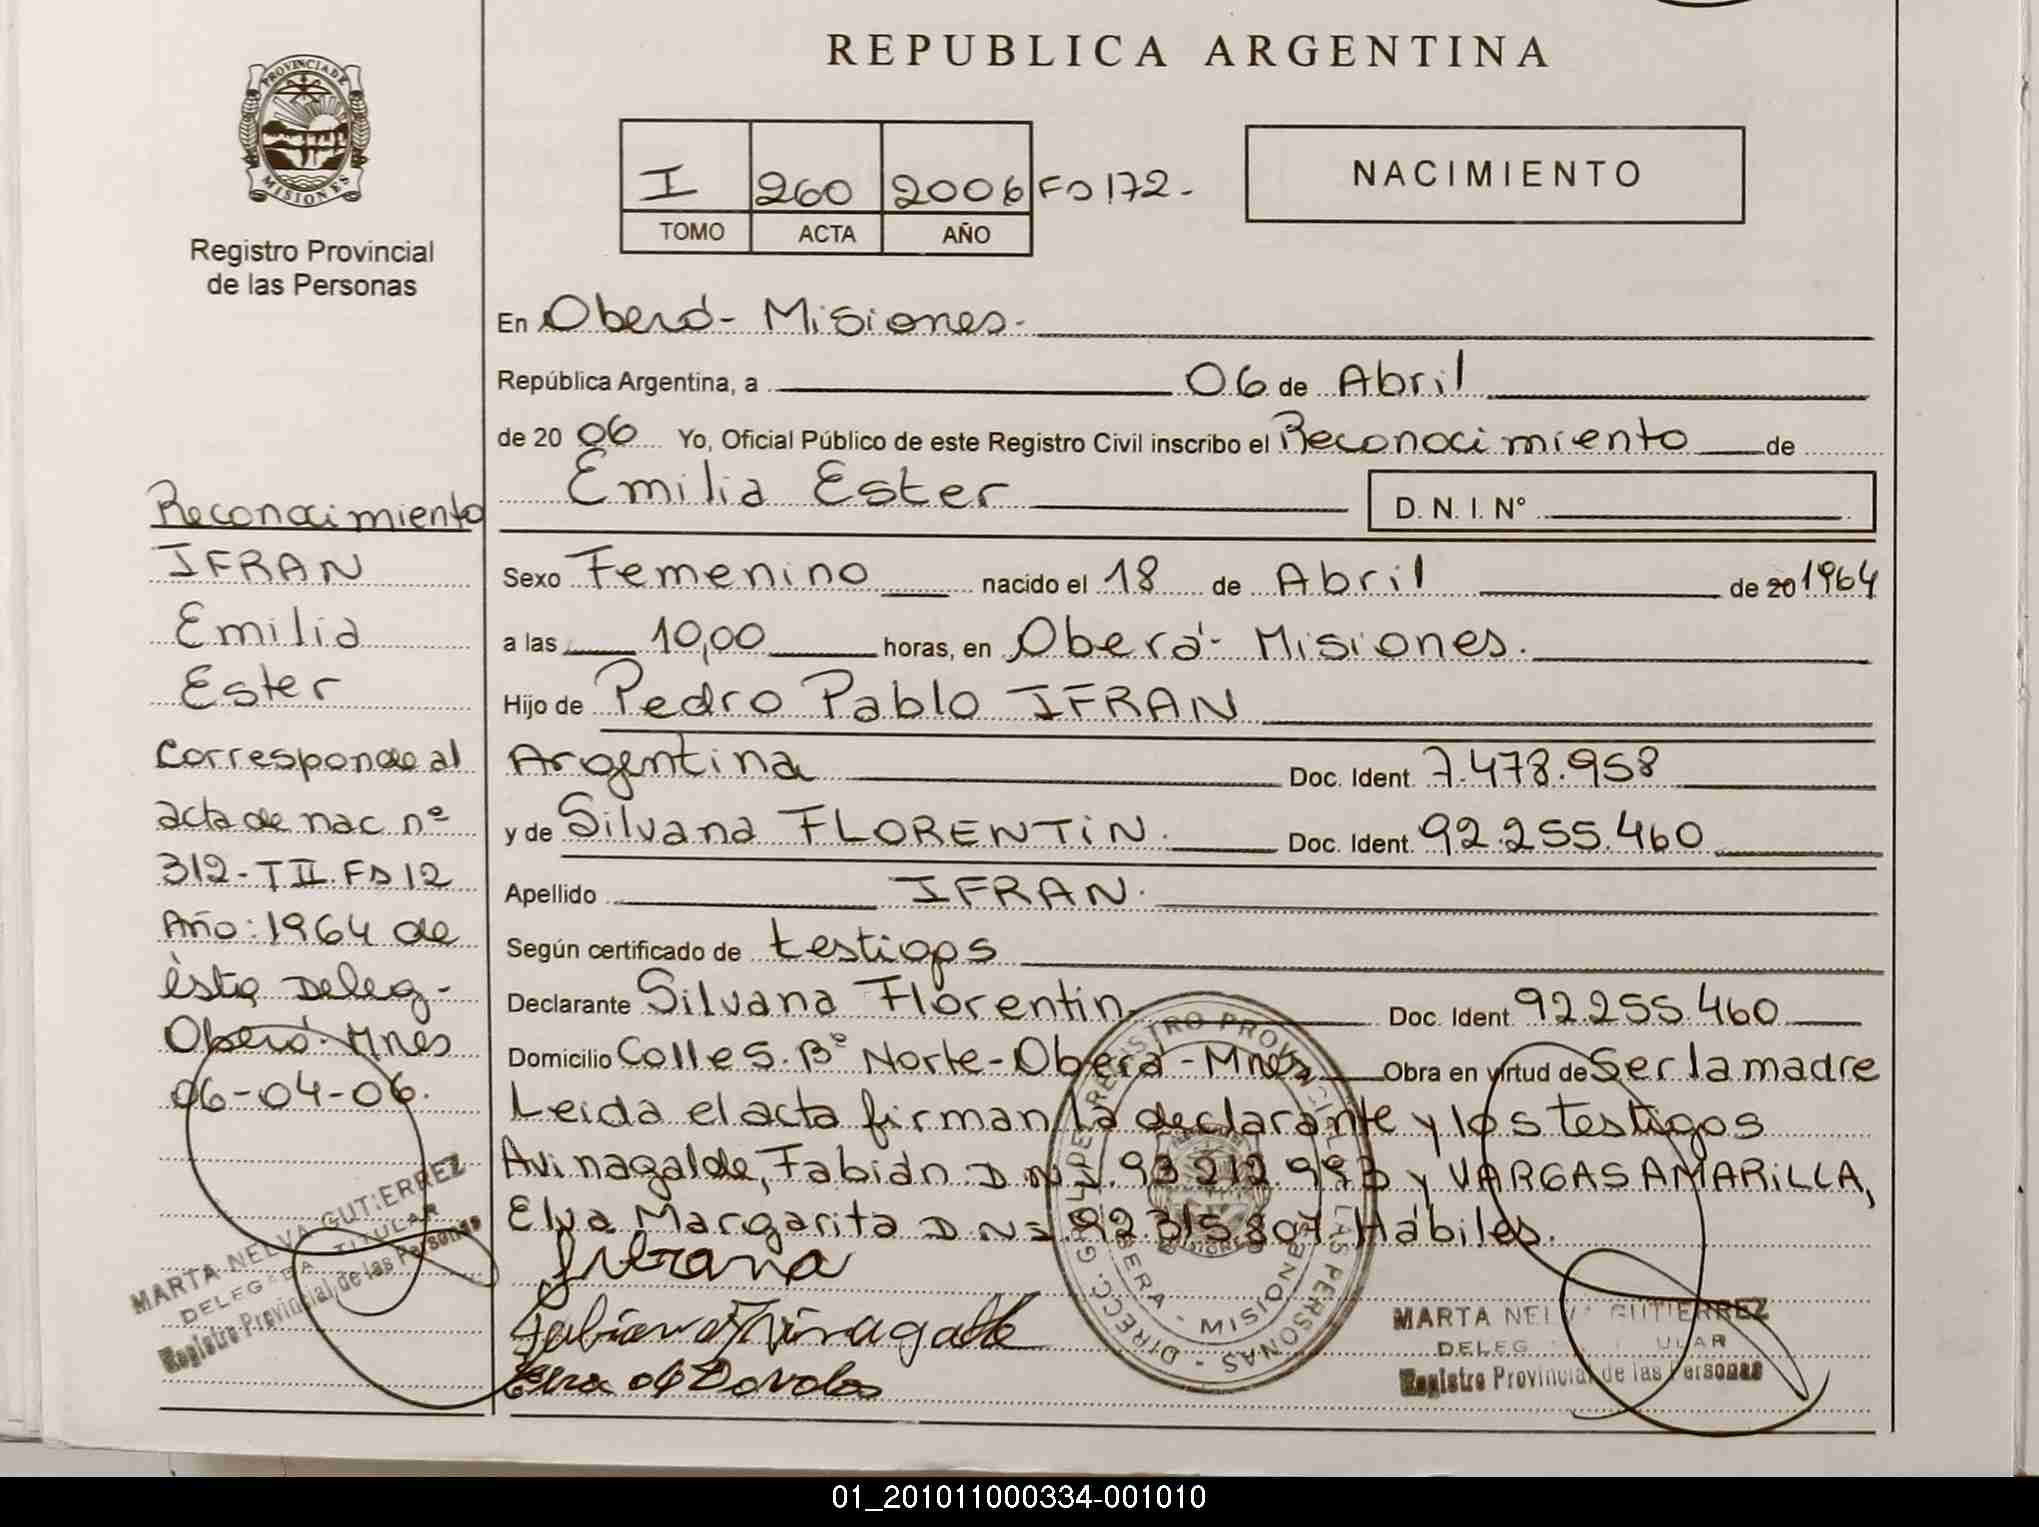 REPUBLICA ARGENTINA
PROVINCIA DE MISIONES
Registro Provincial
de las Personas
I 260 2006 Fo 172-
TOMO ACTA AÑO
NACIMIENTO
En Oberá- Misiones-
República Argentina, a 06 de Abril
de 20 06 Yo, Oficial Público de este Registro Civil inscribo el Reconocimiento de
Emilia Ester D. N. I. Nº
Sexo Femenino nacido el 18 de Abril de 20 1964
a las 10,00 horas, en Oberá- Misiones.
Hijo de Pedro Pablo IFRAN
Argentina Doc. Ident. 7.478.958
y de Silvana FLORENTIN. Doc. Ident. 92.255.460
Apellido IFRAN.
Según certificado de testigos
Declarante Silvana Florentin Doc. Ident. 92.255.460
Domicilio Calle S. Bº Norte-Oberá-Mnes Obra en virtud de Ser la madre
Leida el acta firman la declarante y los testigos
Avinagalde, Fabián D N I. 93.212.993 y VARGAS AMARILLA,
Elva Margarita D N I. 92.315.307. Hábiles.
Silvana
Reconocimiento
IFRAN
Emilia
Ester
Corresponde al
acta de nac nº
312- T II. Fo 12
Año: 1964 de
ésta Deleg-
Oberá. Mnes
06-04-06.
MARTA NELVA GUTIERREZ
DELEGADA TITULAR
Registro Provincial de las Personas
DIRECC. GRAL. DE REGISTRO PROVINCIAL DE LAS PERSONAS
OBERA - MISIONES
MARTA NELVA GUTIERREZ
DELEG ULAR
Registro Provincial de las Personas
01_201011000334-001010